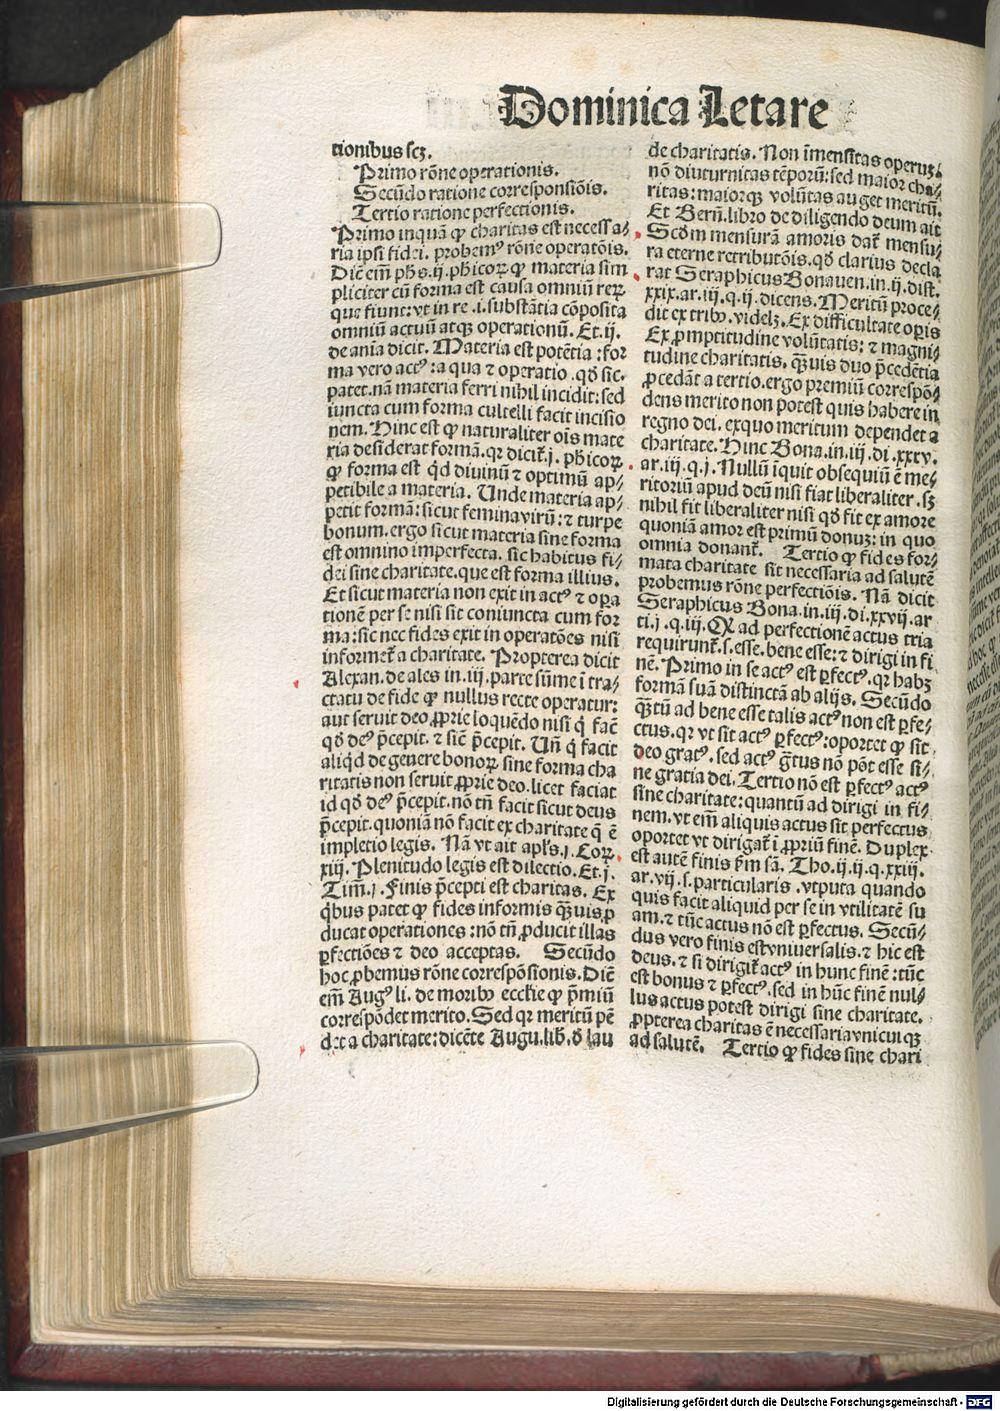 Dominica Letare
tionibus scꝫ.
Primo rōne operationis.
Secūdo ratione corresponsiōis.
Tertio ratione perfectionis.
Primo inquā ꝙ charitas est necessa/
ria ipsi fidei. probemꝰ rōne operatōis.
Diċ em̄ phs.ij.phicoꝝ ꝙ materia sim
pliciter cū forma est causa omniū reꝝ
que fiunt: vt in re .i. substātia cōposita
omniū actuū atqꝫ operationū. Et .ij.
de aīa dicit. Materia est potētia: for
ma vero actꝰ: a qua ⁊ operatio .qđ sic.
patet. nā materia ferri nihil incidit: sed
iuncta cum forma cultelli facit incisio
nem. Hinc est ꝙ naturaliter oīs mate
ria desiderat formā. qr dicit̄.j. phicoꝝ
ꝙ forma est qđ diuinū ⁊ optimū ap/
petibile a materia. Unde materia ap/
petit formā: sicut femina virū: ⁊ turpe
bonum. ergo sicut materia sine forma
est omnino imperfecta. sic habitus fi/
dei sine charitate. que est forma illius.
Et sicut materia non exit in actꝰ ⁊ oꝑa
tionē per se nisi sit coniuncta cum for
ma: sic nec fides exit in operatōes nisi
informet̄ a charitate. Propterea dicit
Alexan. de ales in .iij. parte sūme ī tra/
ctatu de fide ꝙ nullus recte operatur:
aut seruit deo ꝓprie loquēdo nisi q̇ faċ
qđ deꝰ p̄cepit. ⁊ sic̄ p̄cepit. Un̄ q̇ facit
aliqđ de genere bonoꝝ sine forma cha
ritatis non seruit ꝓprie deo. licet faciat
id qđ deꝰ p̄cepit. nō tn̄ facit sicut deus
p̄cepit. quoniā nō facit ex charitate q̄ ē
impletio legis. Nā vt ait apl's.j. Coꝝ
xiij. Plenitudo legis est dilectio. Et .j.
Tim̄.j. Finis p̄cepti est charitas. Ex
q̇bus patet ꝙ fides informis qꝫuis ꝓ
ducat operationes: nō tn̄ ꝓducit illas
ꝑfectiōes ⁊ deo acceptas. Secūdo
hoc ꝓbemus rōne correspōsionis. Diċ
em̄ Augꝰ li. de moribꝰ ecclie ꝙ p̄miū
correspōdet merito. Sed qr meritū pē
det a charitate: dicēte Augu. lib. đ lau
de charitatis. Non īmensitas operuꝫ:
nō diuturnitas tēporū: sed maior cha/
ritas: maiorqꝫ volūtas auget meritū.
Et Bern̄. libro de diligendo deum ait
Scđm mensurā amoris dat̄ mensu/
ra eterne retributōis. qđ clarius decla
rat Seraphicus Bonauen. in .ij. dist.
xxix. ar. iij. q. ij. dicens. Meritū proce/
dit ex tribꝰ. videlꝫ. Ex difficultate oꝑis
Ex ꝓmptitudine volūtatis: ⁊ magni/
tudine charitatis. qꝫuis duo p̄cedētia
ꝓcedāt a tertio. ergo premiū correspō/
dens merito non potest quis habere in
regno dei. exquo meritum dependet a
charitate. Hinc Bona. in .iij. di. xxxv.
ar. iij. q. j. Nullū īquit obsequiū ē me/
ritoriū apud deū nisi fiat liberaliter. sꝫ
nihil fit liberaliter nisi qđ fit ex amore
quoniā amor est primū donuꝫ: in quo
omnia donant̄. Tertio ꝙ fides for/
mata charitate sit necessaria ad salutē
probemus rōne perfectiōis. Nā dicit
Seraphicus Bona. in .iij. di. xxvij. ar
ti. j. q. iij. Qꝫ ad perfectionē actus tria
requirunt̄. s. esse. bene esse: ⁊ dirigi in fi
nē. Primo in se actꝰ est ꝑfectꝰ. qr habꝫ
formā suā distinctā ab alijs. Secūdo
qꝫtū ad bene esse talis actꝰ non est ꝑfe/
ctus. qr vt sit actꝰ ꝑfectꝰ: oportet ꝙ sit
deo gratꝰ. sed actꝰ gr̄tus nō pōt esse si/
ne gratia dei. Tertio nō est ꝑfectꝰ actꝰ
sine charitate: quantū ad dirigi in fi/
nem. vt em̄ aliquis actus sit perfectus
oportet vt dirigat̄ ī ꝓpriū finē. Duplex
est autē finis ꝑm sā. Tho. ij. ij. q. xxiij.
ar. vij. s. particularis. vtputa quando
quis facit aliquid per se in vtilitatē su
am. ⁊ tūc actus nō est ꝑfectus. Secū/
dus vero finis est vniuersalis. ⁊ hic est
deus. ⁊ si dirigit̄ actꝰ in hunc finē: tūc
est bonus ⁊ ꝑfectꝰ. sed in hūc finē nul/
lus actus potest dirigi sine charitate.
ꝓpterea charitas ē necessaria vnicuiqꝫ
ad salutē. Tertio ꝙ fides sine chari
Digitalisierung gefördert durch die Deutsche Forschungsgemeinschaft - DFG